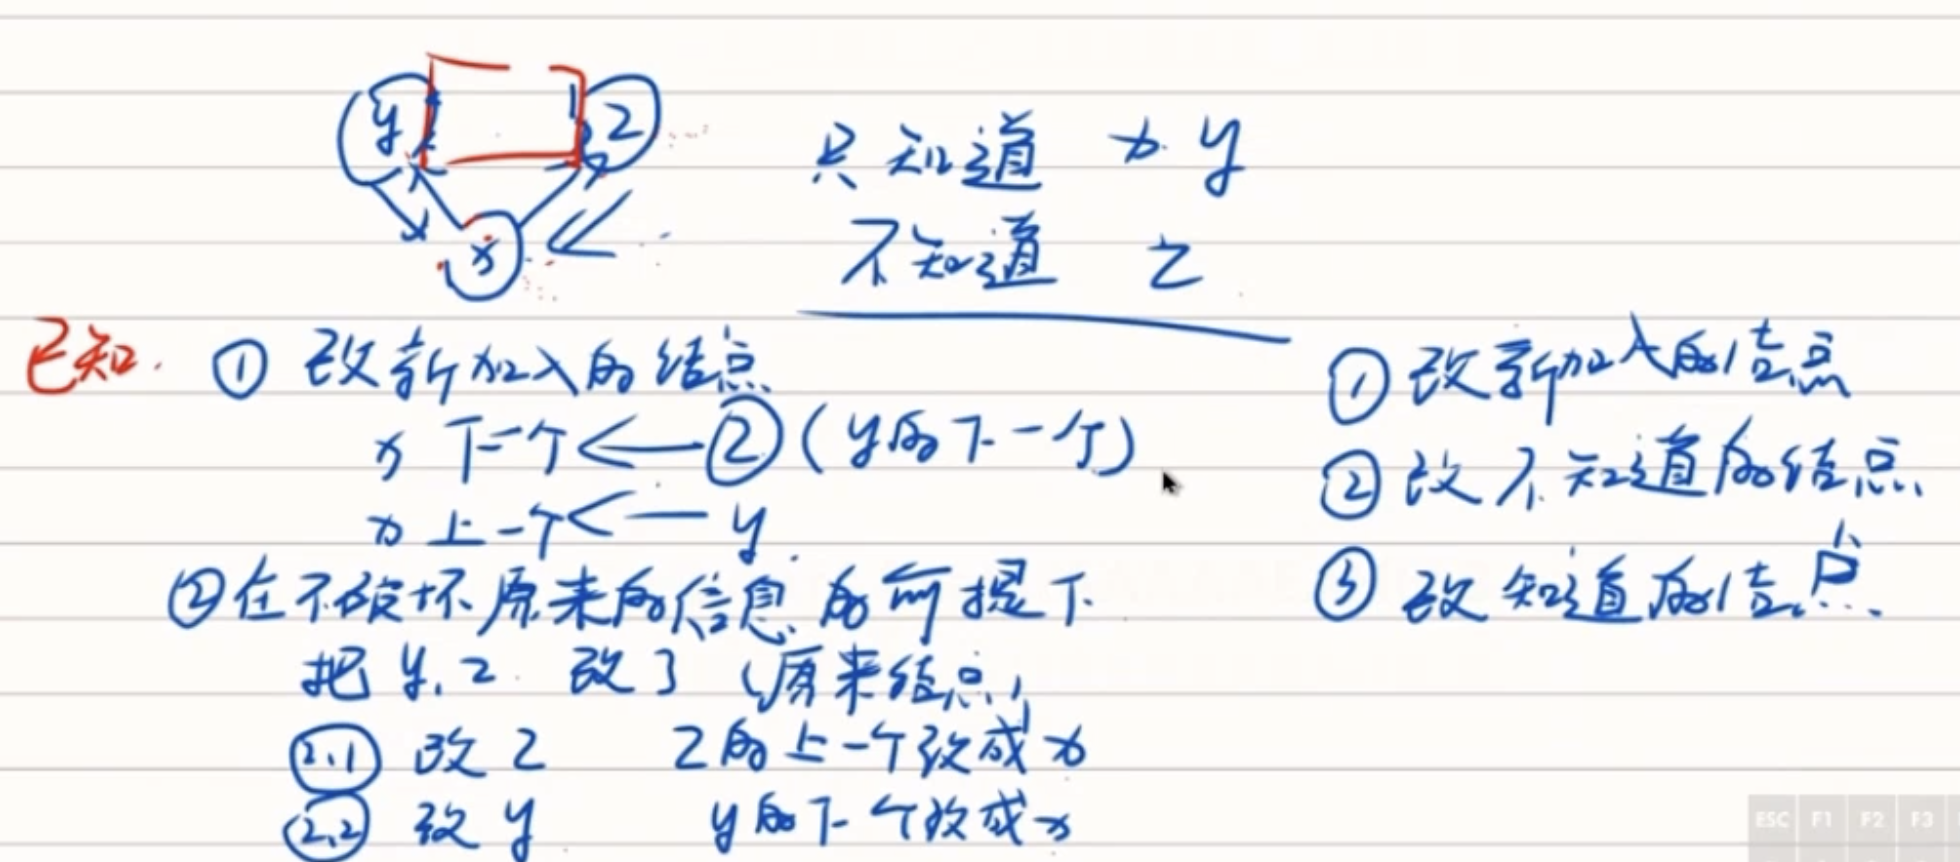 y z
x
只知道 x y
不知道 z
已知.
① 改新加入的结点
x 下一个 ← z (y的下一个)
x 上一个 ← y
② 在不破坏原来的信息的前提下
把 y, z 改了 (原来结点)
2.1 改 z z的上一个改成 x
2.2 改 y y的下一个改成 x
① 改新加入的结点
② 改不知道的结点
③ 改知道的结点
ESC F1 F2 F3